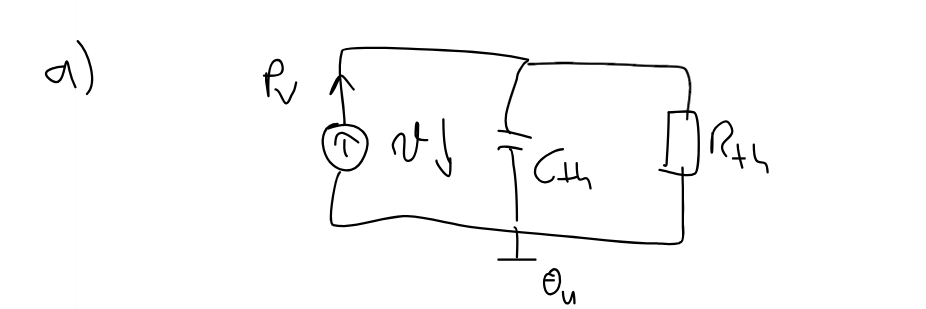 a)
P_v
ϑ
C_th
R_th
θ_u